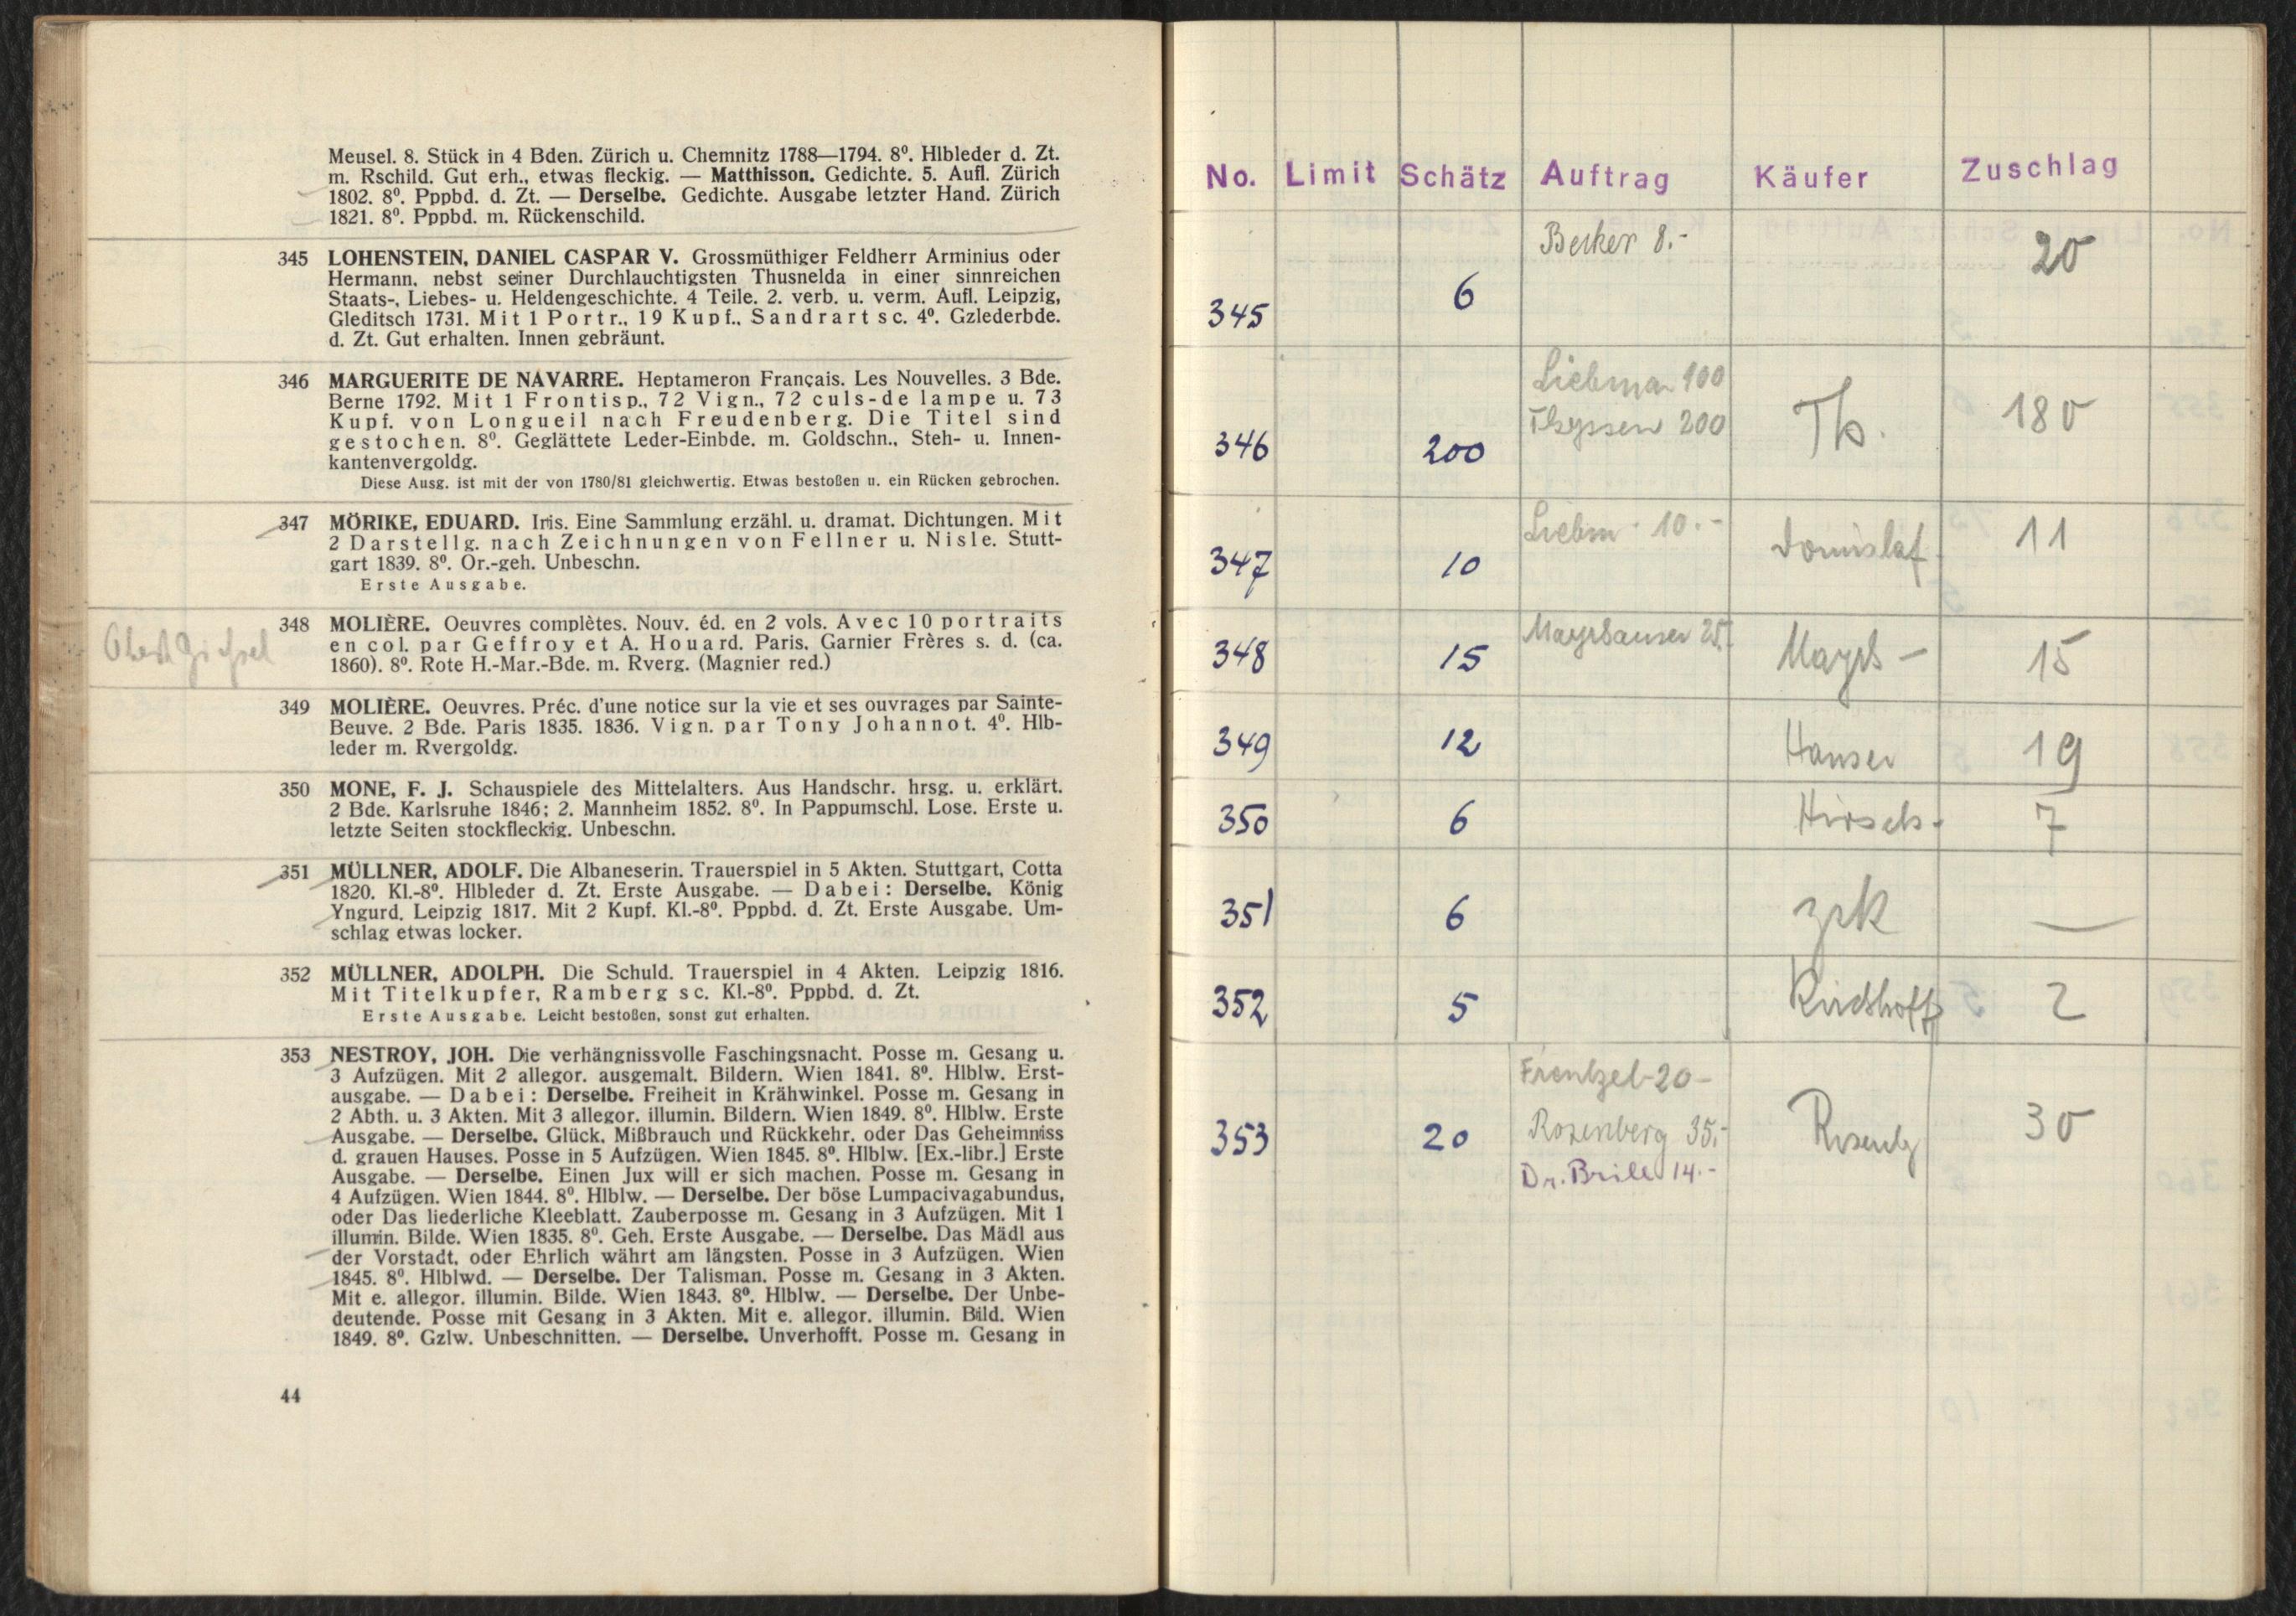 Meusel. 8. Stück in 4 Bden. Zürich u. Chemnitz 1788—1794. 8⁰. Hlbleder d. Zt.
m. Rschild. Gut erh., etwas fleckig. — Matthisson. Gedichte. 5. Aufl. Zürich
1802. 8⁰. Pppbd. d. Zt. — Derselbe. Gedichte. Ausgabe letzter Hand. Zürich
1821. 8⁰. Pppbd. m. Rückenschild.
345 LOHENSTEIN, DANIEL CASPAR V. Grossmüthiger Feldherr Arminius oder
Hermann, nebst seiner Durchlauchtigsten Thusnelda in einer sinnreichen
Staats-, Liebes- u. Heldengeschichte. 4 Teile. 2. verb. u. verm. Aufl. Leipzig,
Gleditsch 1731. Mit 1 Portr., 19 Kupf., Sandrart sc. 4⁰. Gzlederbde.
d. Zt. Gut erhalten. Innen gebräunt.
346 MARGUERITE DE NAVARRE. Heptameron Français. Les Nouvelles. 3 Bde.
Berne 1792. Mit 1 Frontisp., 72 Vign., 72 culs-de lampe u. 73
Kupf. von Longueil nach Freudenberg. Die Titel sind
gestochen. 8⁰. Geglättete Leder-Einbde. m. Goldschn., Steh- u. Innen-
kantenvergoldg.
Diese Ausg. ist mit der von 1780/81 gleichwertig. Etwas bestoßen u. ein Rücken gebrochen.
347 MÖRIKE, EDUARD. Iris. Eine Sammlung erzähl. u. dramat. Dichtungen. Mit
2 Darstellg. nach Zeichnungen von Fellner u. Nisle. Stutt-
gart 1839. 8⁰. Or.-geh. Unbeschn.
Erste Ausgabe.
348 MOLIÈRE. Oeuvres complètes. Nouv. éd. en 2 vols. Avec 10 portraits
en col. par Geffroy et A. Houard. Paris, Garnier Frères s. d. (ca.
1860). 8⁰. Rote H.-Mar.-Bde. m. Rverg. (Magnier red.)
349 MOLIÈRE. Oeuvres. Préc. d'une notice sur la vie et ses ouvrages par Sainte-
Beuve. 2 Bde. Paris 1835. 1836. Vign. par Tony Johannot. 4⁰. Hlb-
leder m. Rvergoldg.
350 MONE, F. J. Schauspiele des Mittelalters. Aus Handschr. hrsg. u. erklärt.
2 Bde. Karlsruhe 1846; 2. Mannheim 1852. 8⁰. In Pappumschl. Lose. Erste u.
letzte Seiten stockfleckig. Unbeschn.
351 MÜLLNER, ADOLF. Die Albaneserin. Trauerspiel in 5 Akten. Stuttgart, Cotta
1820. Kl.-8⁰. Hlbleder d. Zt. Erste Ausgabe. — Dabei: Derselbe. König
Yngurd. Leipzig 1817. Mit 2 Kupf. Kl.-8⁰. Pppbd. d. Zt. Erste Ausgabe. Um-
schlag etwas locker.
352 MÜLLNER, ADOLPH. Die Schuld. Trauerspiel in 4 Akten. Leipzig 1816.
Mit Titelkupfer, Ramberg sc. Kl.-8⁰. Pppbd. d. Zt.
Erste Ausgabe. Leicht bestoßen, sonst gut erhalten.
353 NESTROY, JOH. Die verhängnissvolle Faschingsnacht. Posse m. Gesang u.
3 Aufzügen. Mit 2 allegor. ausgemalt. Bildern. Wien 1841. 8⁰. Hlblw. Erst-
ausgabe. — Dabei: Derselbe. Freiheit in Krähwinkel. Posse m. Gesang in
2 Abth. u. 3 Akten. Mit 3 allegor. illumin. Bildern. Wien 1849. 8⁰. Hlblw. Erste
Ausgabe. — Derselbe. Glück, Mißbrauch und Rückkehr, oder Das Geheimniss
d. grauen Hauses. Posse in 5 Aufzügen. Wien 1845. 8⁰. Hlblw. [Ex.-libr.] Erste
Ausgabe. — Derselbe. Einen Jux will er sich machen. Posse m. Gesang in
4 Aufzügen. Wien 1844. 8⁰. Hlblw. — Derselbe. Der böse Lumpacivagabundus,
oder Das liederliche Kleeblatt. Zauberposse m. Gesang in 3 Aufzügen. Mit 1
illumin. Bilde. Wien 1835. 8⁰. Geh. Erste Ausgabe. — Derselbe. Das Mädl aus
der Vorstadt, oder Ehrlich währt am längsten. Posse in 3 Aufzügen. Wien
1845. 8⁰. Hlblwd. — Derselbe. Der Talisman. Posse m. Gesang in 3 Akten.
Mit e. allegor. illumin. Bilde. Wien 1843. 8⁰. Hlblw. — Derselbe. Der Unbe-
deutende. Posse mit Gesang in 3 Akten. Mit e. allegor. illumin. Bild. Wien
1849. 8⁰. Gzlw. Unbeschnitten. — Derselbe. Unverhofft. Posse m. Gesang in
44
No. Limit Schätz Auftrag Käufer Zuschlag
Becker 8.-
345 6 20
Liebman 100
Thyssen 200
346 200 Th. 180
Liebm. 10.-
347 10 11
Mayrhauser 25.
348 15 Mayrh — 15
349 12 Hanser 19
350 6 Hirsch. 7
351 6 zrk —
352 5 Kirchhoff 2
Frentzel-20-
Rosenberg 35.-
353 20 Rosenbg 30
Dr. Brill 14.-